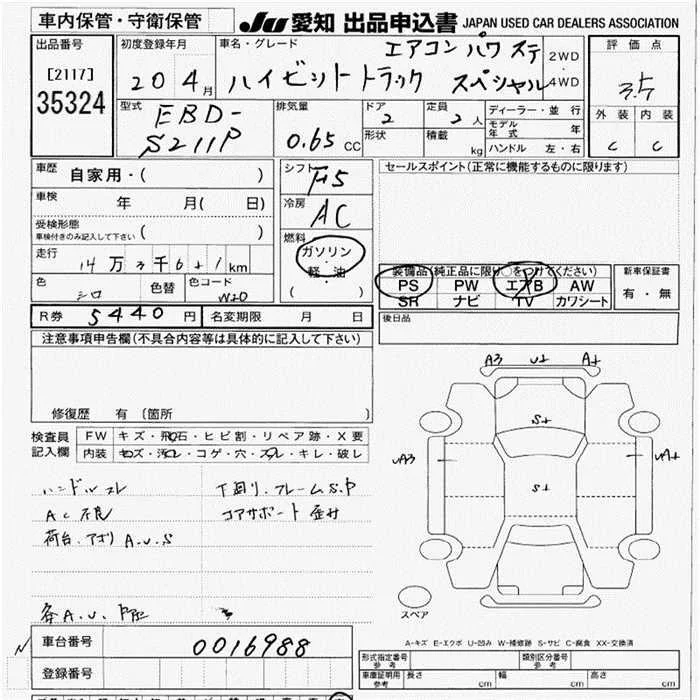 車内保管・守衛保管
JU 愛知 出品申込書 JAPAN USED CAR DEALERS ASSOCIATION
出品番号
[2117]
35324
初度登録年月
20 4月
車名・グレード
エアコン パワステ
ハイゼットトラック スペシャル
2WD
4WD
評価点
3.5
外装 内装
C C
型式
EBD-
S211P
排気量
0.65 CC
ドア
2
定員
2 人
形状
積載
kg
ディーラー・並行
モデル年式 年
ハンドル 左・右
車歴
自家用・( )
車検 年 月( 日)
受検形態
車検付きのみ記入して下さい ( )
走行
14万3千6十1km
色
シロ
色替
色コード
W20
シフト
F5
冷房
AC
燃料
ガソリン
軽・油
( )
セールスポイント(正常に機能するものに限ります)
装備品(純正品に限り○をつけてください)
PS PW エアB AW
SR ナビ TV カワシート
新車保証書
有・無
R券 5440円
名変期限 月 日
後日品
注意事項申告欄(不具合内容等は具体的に記入して下さい)
修復歴 有 〔箇所 〕
検査員
記入欄
FW キズ・飛石・ヒビ割・リペア跡・X要
内装 キズ・汚レ・コゲ・穴・スレ・キレ・破レ
ハンドルスレ
AC不良
荷台.アオリ A.U.S
下廻り.フレームS.P
コアサポート 歪み
A.U.
A3 U+ A+
S+
UA3
UA+
S+
スペア
車台番号
0016988
登録番号
A-キズ E-エクボ U-凹み W-補修跡 S-サビ C-腐食 XX-交換済
形式指定番号
参考
類別区分番号
参考
車庫証明用
参考
長さ cm
幅 cm
高さ cm